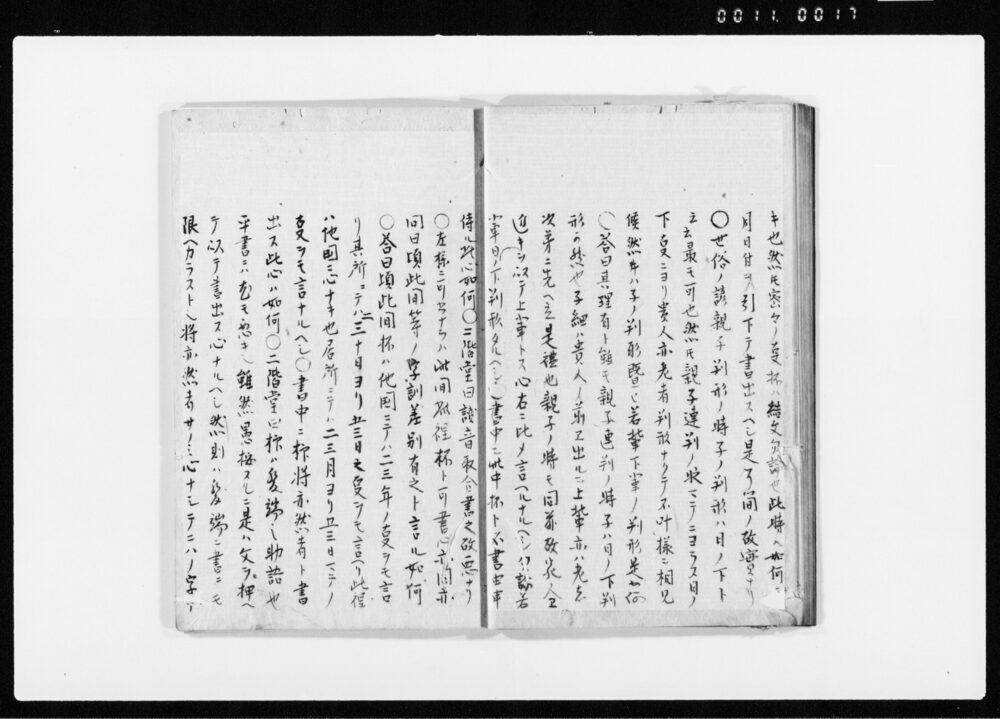 0011.0017
キ也然𪜈密々ノ支杯ハ結文勿論也此時ハ如何ニ
月日付ヲ引下テ書出スヘシ是了簡ノ故実ナリ
〇世俗ノ諺親子判形ノ時子ノ判形ハ日ノ下ト
云云最モ可也然𪜈親子連判ノ状マテニヨラス日ノ
下支ニヨリ貴人亦老者判形ナクテ不叶様ニ相見
候然牛ハ子ノ判形暨ヒ若輩下輩ノ判形是如何
〇答曰其理有ト雖モ親子連判ノ時子ハ日ノ下判
形可然也子細ハ貴人ノ前ヱ出ルニ上輩亦ハ老者
次第ニ先ヘ立是禮也親子ノ時モ同前故ニ
近キヲ以テ上輩トス心右ニ比メ言ヘルナルヘシ
輩日ノ下判形タルヘシ〇書中ニ此中杯ト不書由承
侍ル此心如何〇二階堂曰読音取合書之故悪ナリ
〇左様ニ可ナラハ此間杯ト可書心亦同亦
問曰頃此間等ノ字訓差別有之ト言ル如何
〇答曰頃此間杯ハ他国ニテハ二三年ノ支ヲモ言
リ其所ニテハ二三十日ヨリ五三日之支ヲモ言ヘリ此程
ハ他国ニ心ナキ也居所ニテハ二三月ヨリ五三日マテノ
支ヲモ言ナルヘシ〇書中ニ抑将亦然者ト書
出ス此心ハ如何〇二階堂曰抑ハ発端之助語也
平書ニハ尤モ悪キ也雖然愚按スルニ是ハ文ヲ押ヘ
テ以テ書出ス心ナルヘシ然則ハ発端ニ書ニモ
限ヘカラスト也将亦然者サノミ心ナシテニハノ字ナ